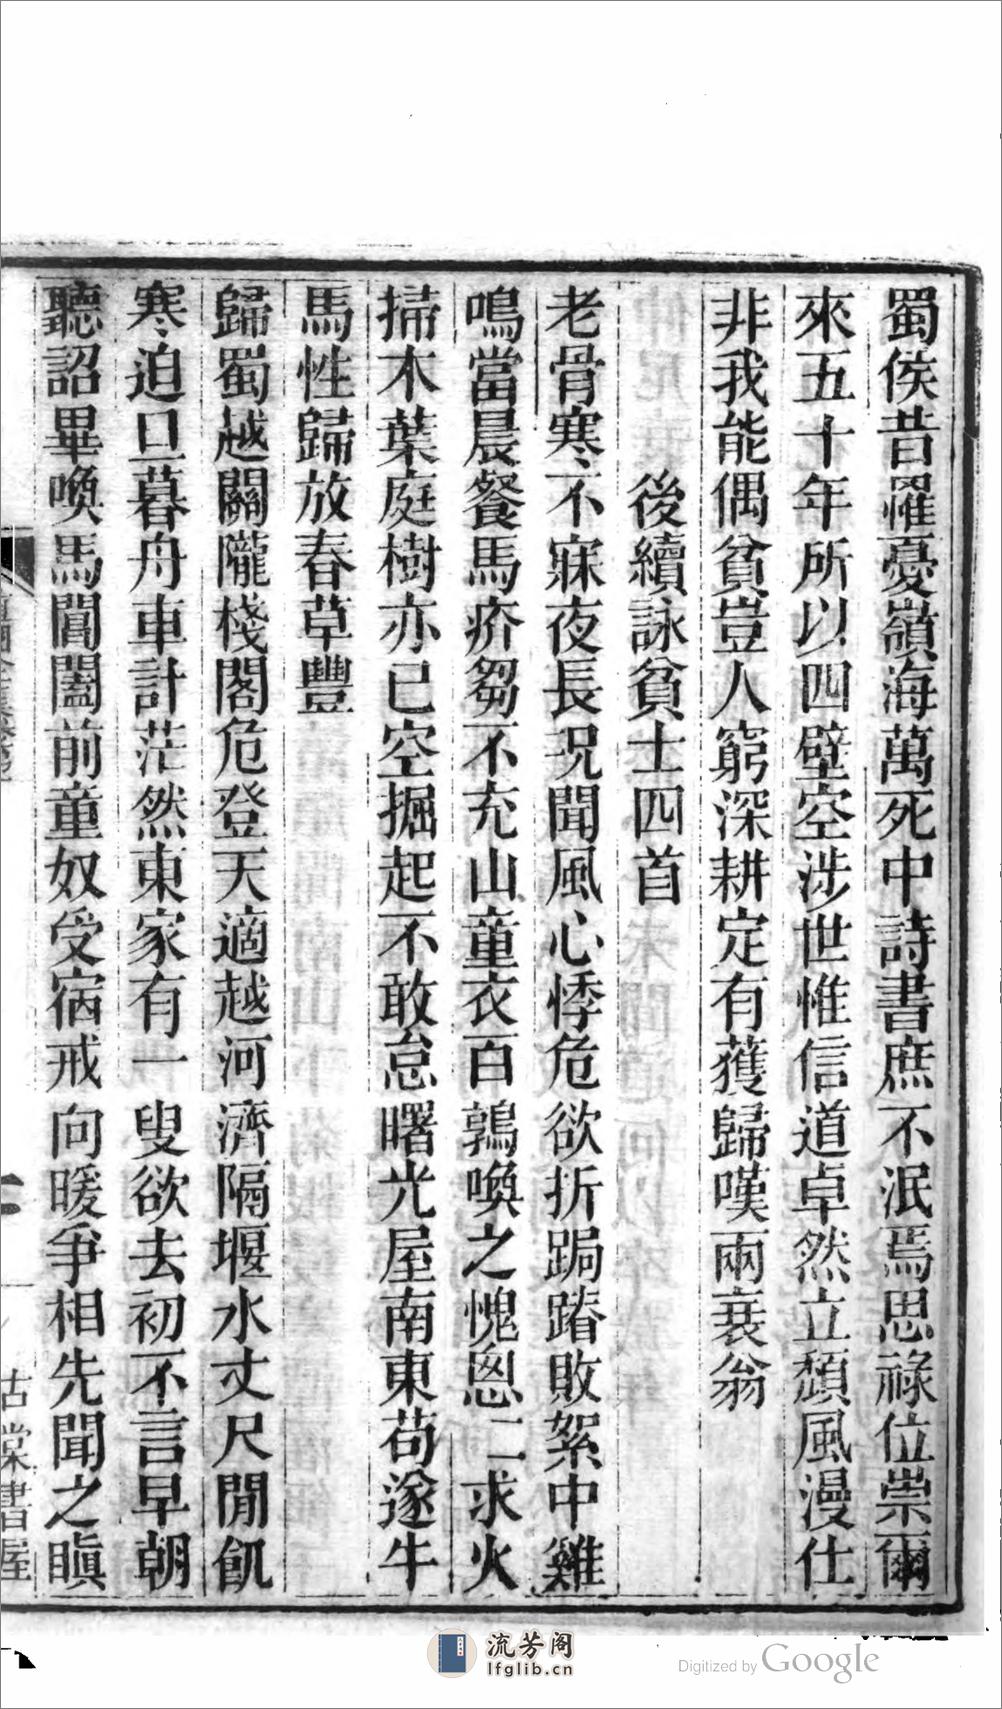 蜀侯昔罹憂嶺海萬死中詩書庶不泯焉思祿位崇爾
來五十年所以四壁空涉世惟信道卓然立頽風漫仕
非我能偶貧豈人窮深耕定有獲歸嘆兩衰翁
後續詠貧士四首
老骨寒不寐夜長況聞風心悸危欲折跼蹐敗絮中雞
鳴當晨餐馬疥芻不充山童衣百鶉喚之愧恩二求火
掃木葉庭樹亦已空掘起不敢怠曙光屋南東苟遂牛
馬性歸放春草豐
歸蜀越關隴棧閣危登天適越河濟隔堰水丈尺閒飢
寒迫旦暮舟車計茫然東家有一叟欲去初不言早朝
聽詔畢喚馬閶闔前童奴受宿戒向暖爭相先聞之瞋
古棠書屋
流芳阁
lfglib.cn
Digitized by Google